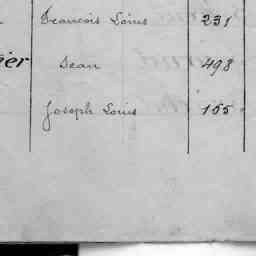 Francois Louis 231
ier Jean 498
Joseph Louis 155